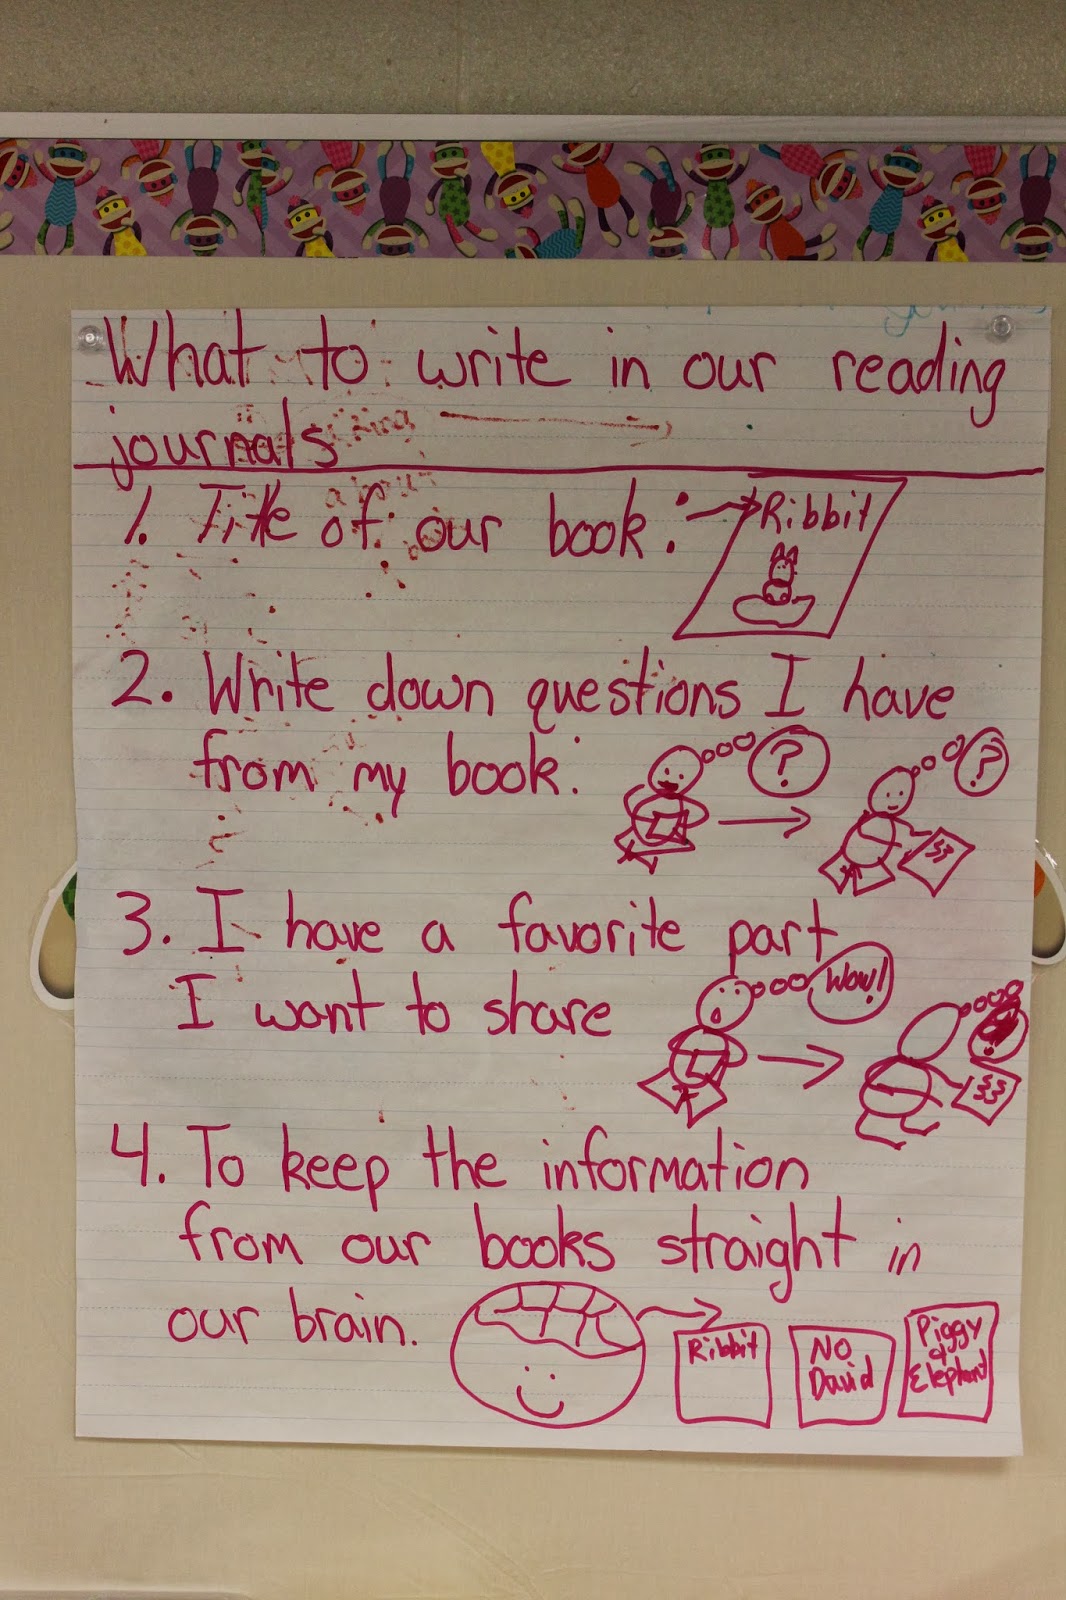 What to write in our reading
journals
1. Title of our book:
Ribbit
2. Write down questions I have
from my book:
?
?
3. I have a favorite part
I want to share
Wow!
4. To keep the information
from our books straight in
our brain.
Ribbit
NO
David
Piggy
&
Elephant